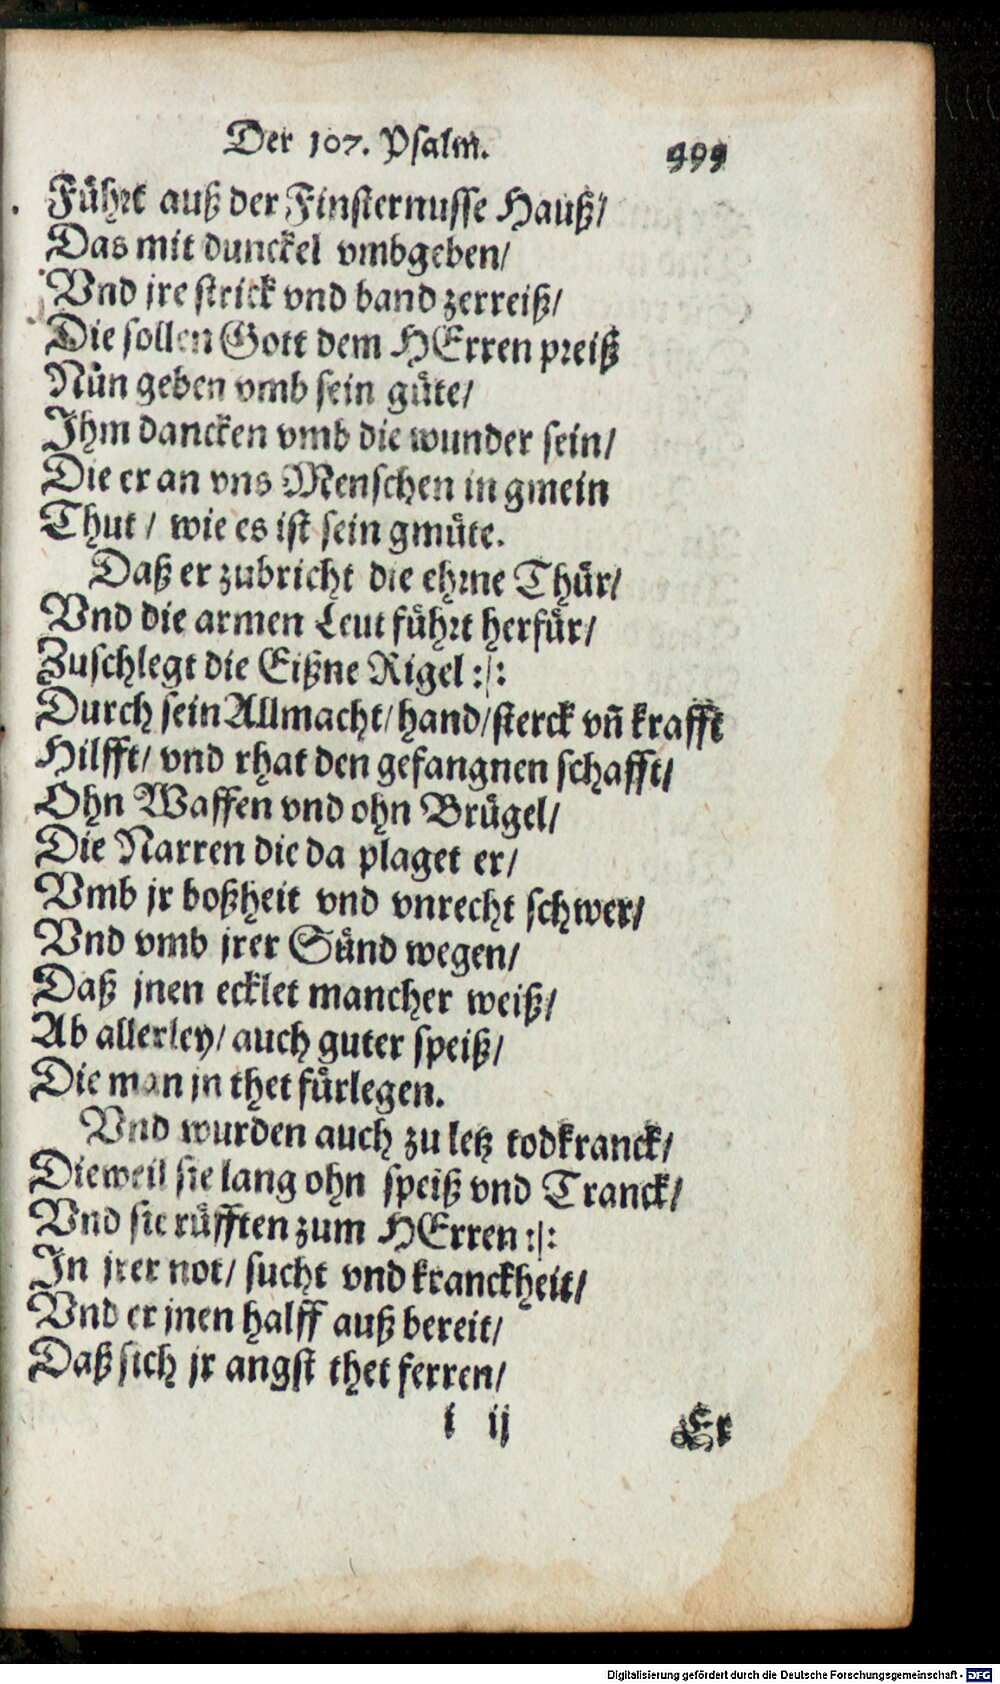 Der 107. Psalm. 499
Führt auß der Finsternusse Hauß/
Das mit dunckel vmbgeben/
Vnd jre strick vnd band zerreiß/
Die sollen Gott dem HErren preiß
Nůn geben vmb sein güte/
Ihm dancken vmb die wunder sein/
Die er an vns Menschen in gmein
Thut / wie es ist sein gmüte.
Daß er zubricht die ehrne Thür/
Vnd die armen Leut führt herfür/
Zuschlegt die Eißne Rigel :/:
Durch sein Allmacht/ hand/ sterck vñ krafft
Hilfft/ vnd rhat den gefangnen schafft/
Ohn Waffen vnd ohn Brügel/
Die Narren die da plaget er/
Vmb jr boßheit vnd vnrecht schwer/
Vnd vmb jrer Sünd wegen/
Daß jnen ecklet mancher weiß/
Ab allerley/ auch guter speiß/
Die man jn thet fürlegen.
Vnd wurden auch zu letz todkranck/
Dieweil sie lang ohn speiß vnd Tranck/
Vnd sie rüfften zum HErren :/:
In jrer not/ sucht vnd kranckheit/
Vnd er jnen halff auß bereit/
Daß sich jr angst thet ferren/
ij Er
Digitalisierung gefördert durch die Deutsche Forschungsgemeinschaft - DFG